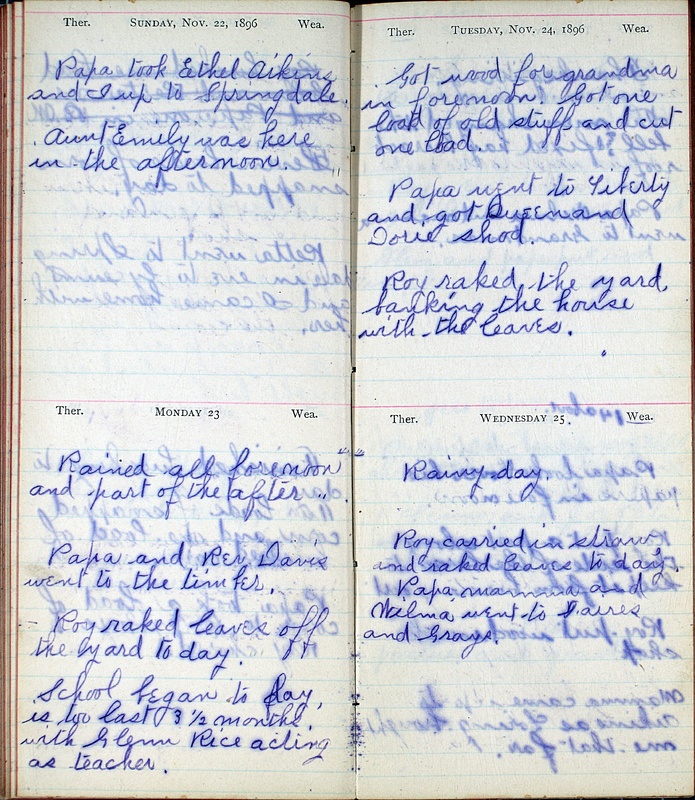 Ther. SUNDAY, NOV. 22, 1896 Wea.
Papa took Ethel Aikins
and I up to Springdale.
Aunt Emily was here
in the afternoon.
Ther. MONDAY 23 Wea.
Rained all forenoon
and part of the after "
Papa and Rev Davis
went to the timber.
Roy raked leaves off
the yard to day.
School began to day,
is too last 3 1/2 months.
with Glenn Rice acting
as teacher.
Ther. TUESDAY, NOV. 24, 1896 Wea.
Got wood for grandma
in forenoon. Got one
load of old stuff and cut
one load.
Papa went to Liberty
and got Queen and
Dove shod.
Roy raked the yard,
banking the house
with the leaves.
Ther. WEDNESDAY 25 Wea.
Rainy day.
Roy carried in straw
and raked leaves to day.
Papa mamma and
Wilma went to
and Grays.